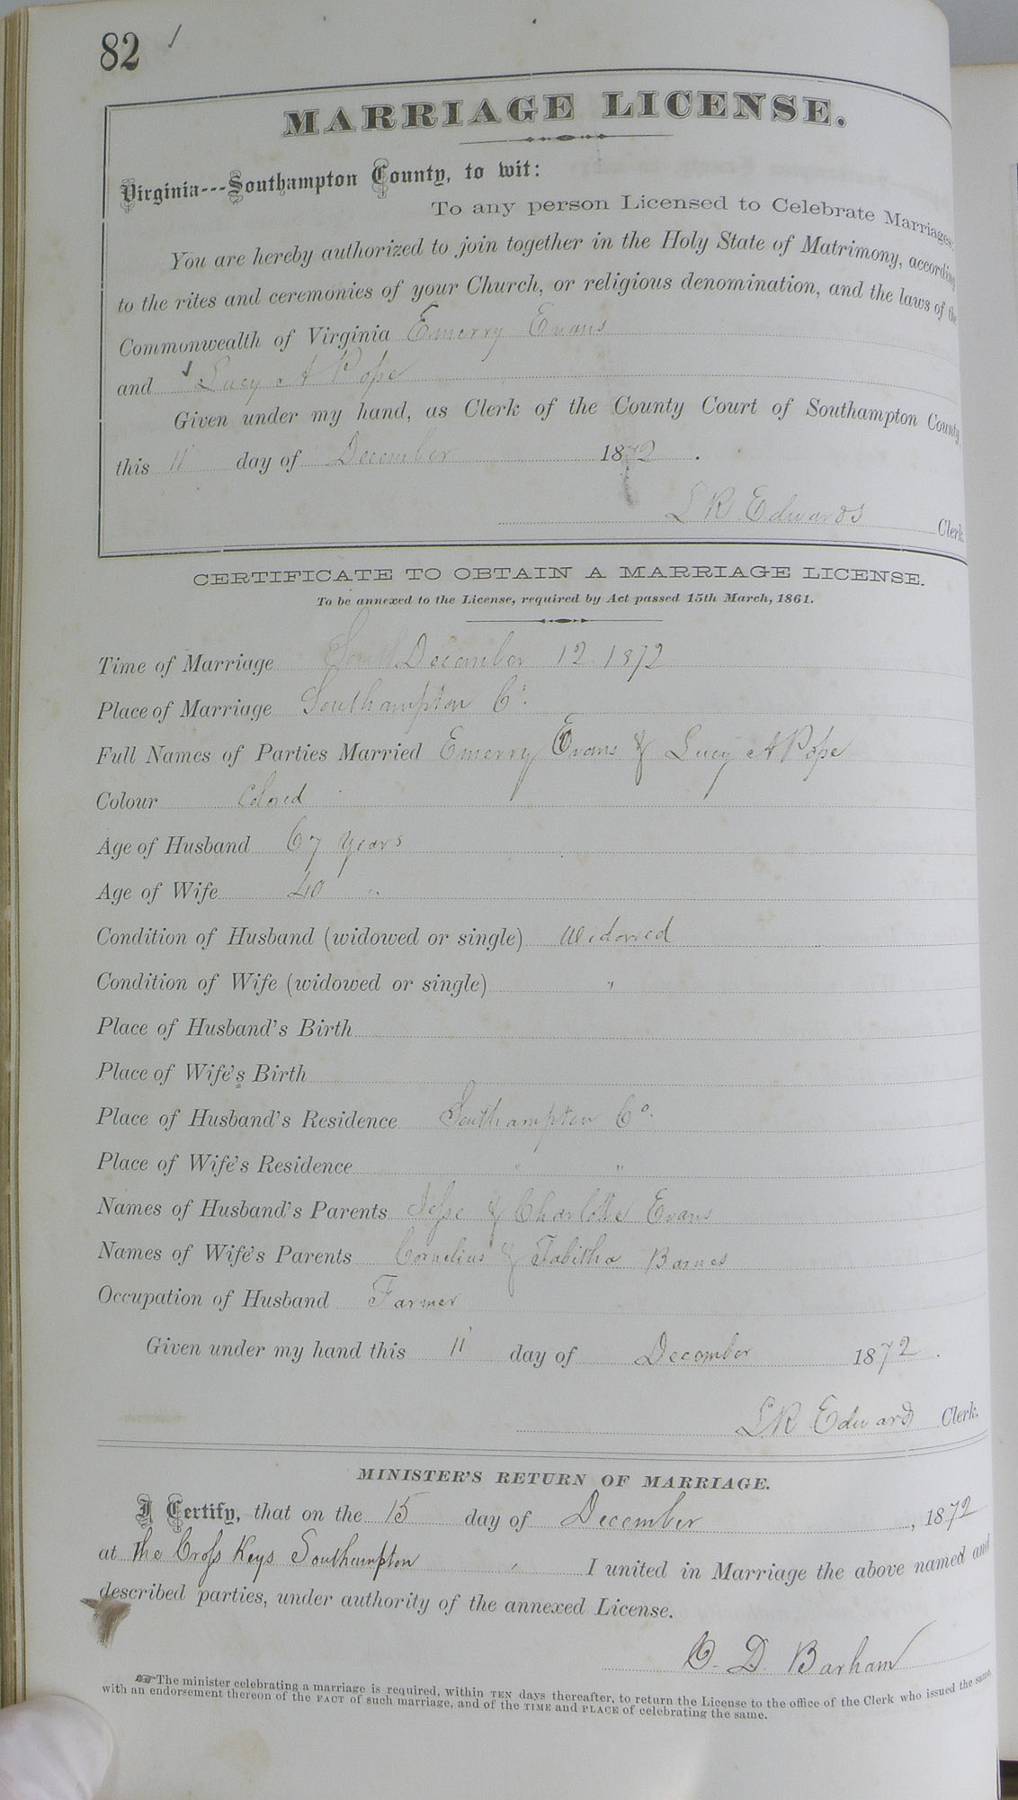 82
MARRIAGE LICENSE.
Virginia---Southampton County, to wit:
To any person Licensed to Celebrate Marriages:
You are hereby authorized to join together in the Holy State of Matrimony, according
to the rites and ceremonies of your Church, or religious denomination, and the laws of the
Commonwealth of Virginia Emerry Evans
and Lucy A Pope
Given under my hand, as Clerk of the County Court of Southampton County
this 11 day of December 1872 .
L R Edwards Clerk.
CERTIFICATE TO OBTAIN A MARRIAGE LICENSE.
To be annexed to the License, required by Act passed 15th March, 1861.
Time of Marriage December 12 1872
Place of Marriage Southampton Co.
Full Names of Parties Married Emerry Evans & Lucy A Pope
Colour Colored
Age of Husband 67 years
Age of Wife 40 "
Condition of Husband (widowed or single) Widowed
Condition of Wife (widowed or single) "
Place of Husband's Birth
Place of Wife's Birth
Place of Husband's Residence Southampton Co.
Place of Wife's Residence " "
Names of Husband's Parents Jesse & Charlotte Evans
Names of Wife's Parents Cornelius & Tabitha Barnes
Occupation of Husband Farmer
Given under my hand this 11 day of December 1872 .
L R Edward Clerk.
MINISTER'S RETURN OF MARRIAGE.
I Certify, that on the 15 day of December , 1872
at the Cross Keys Southampton I united in Marriage the above named and
described parties, under authority of the annexed License.
O. D. Barham
☞ The minister celebrating a marriage is required, within TEN days thereafter, to return the License to the office of the Clerk who issued the same,
with an endorsement thereon of the FACT of such marriage, and of the TIME and PLACE of celebrating the same.